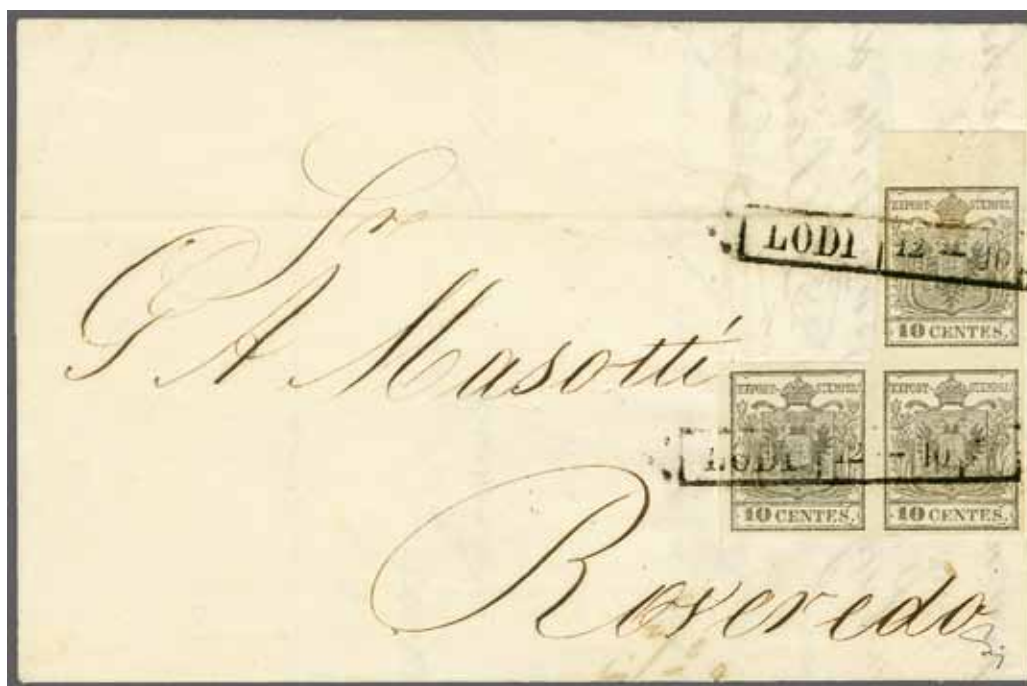 Sr
G A Masotti
Roveredo
LODI 12
KPOST-STEMPEL
10 CENTES.
LODI 12 - 10
KPOST-STEMPEL
10 CENTES.
KPOST-STEMPEL
10 CENTES.